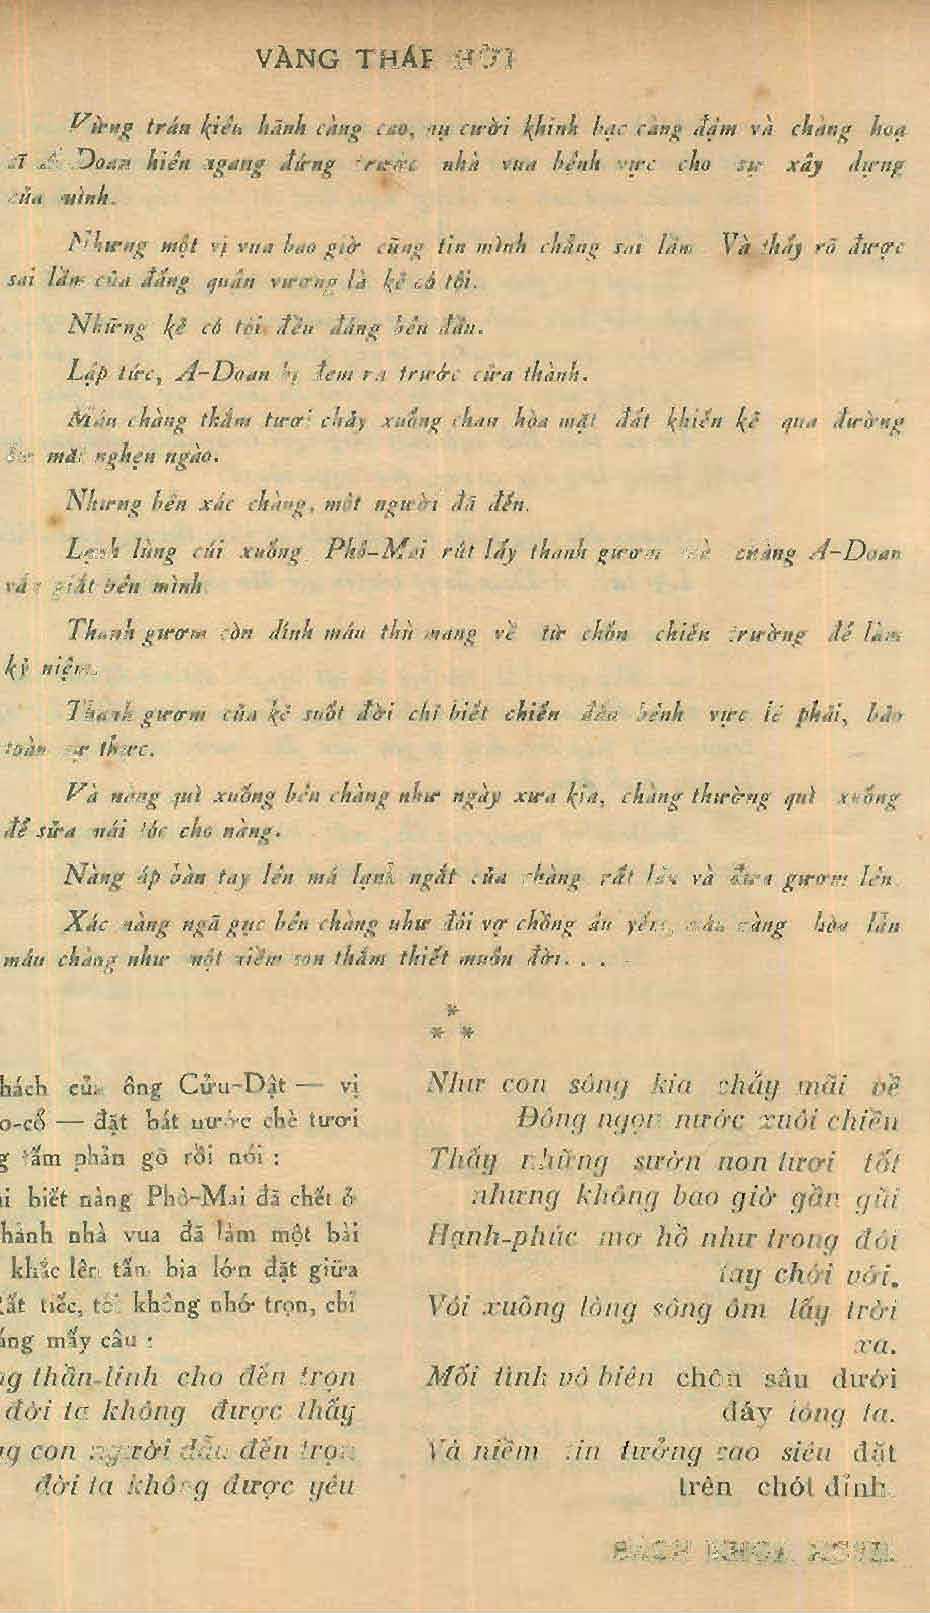 VÀNG THÁP HỜI
Vừng trán kiêu hãnh càng cao, nụ cười khinh bạc càng đậm và chàng hoạ
sĩ A Doan hiên ngang đứng trước nhà vua bênh vực cho sự xây dựng
của mình.
Nhưng một vị vua bao giờ cũng tin mình chẳng sai lầm Và thấy rõ được
sai lầm của đấng quân vương là kẻ có tội.
Những kẻ có tội đều đáng bêu đầu.
Lập tức, A-Doan bị đem ra trước cửa thành.
Máu chàng thắm tươi chảy xuống chan hòa mặt đất khiến kẻ qua đường
mặt nghẹn ngào.
Nhưng bên xác chàng, một người đã đến.
Lạnh lùng cúi xuống Phô-Mai rút lấy thanh gươm mà chàng A-Doan
vẫn giắt bên mình
Thanh gươm còn dính máu thù mang về từ chốn chiến trường để làm
kỷ niệm.
Thanh gươm của kẻ suốt đời chỉ biết chiến đấu bênh vực lẽ phải, bảo
toàn sự thực.
Và nàng quì xuống bên chàng như ngày xưa kia, chàng thường quì xuống
để sửa mái tóc cho nàng.
Nàng áp bàn tay lên má lạnh ngắt của chàng rất lâu và đưa gươm lên
Xác nàng ngã gục bên chàng như đôi vợ chồng âu yếm, máu nàng hòa lẫn
máu chàng như một niềm son thắm thiết muôn đời. . . .
*
* *
hách của ông Cửu-Dật — vị
o-cổ — đặt bát nước chè tươi
g tấm phản gõ rồi nói :
i biết nàng Phô-Mai đã chết ở
hành nhà vua đã làm một bài
khắc lên tấm bia lớn đặt giữa
ất tiếc, tôi không nhớ trọn, chỉ
áng mấy câu :
ng thần-linh cho đến trọn
đời ta không được thấy
ng con người dẫu đến trọn
đời ta không được yêu
Như con sông kia chẩy mãi về
Đông ngọn nước xuôi chiều
Thấy những sườn non tươi tốt
nhưng không bao giờ gần gũi
Hạnh-phúc mơ hồ như trong đôi
tay chới với.
Vói xuống lòng sông ôm lấy trời
xa.
Mối tình vô biên chôn sâu dưới
đáy lòng ta.
Và niềm tin tưởng cao siêu đặt
trên chót đỉnh.
BÁCH KHOA